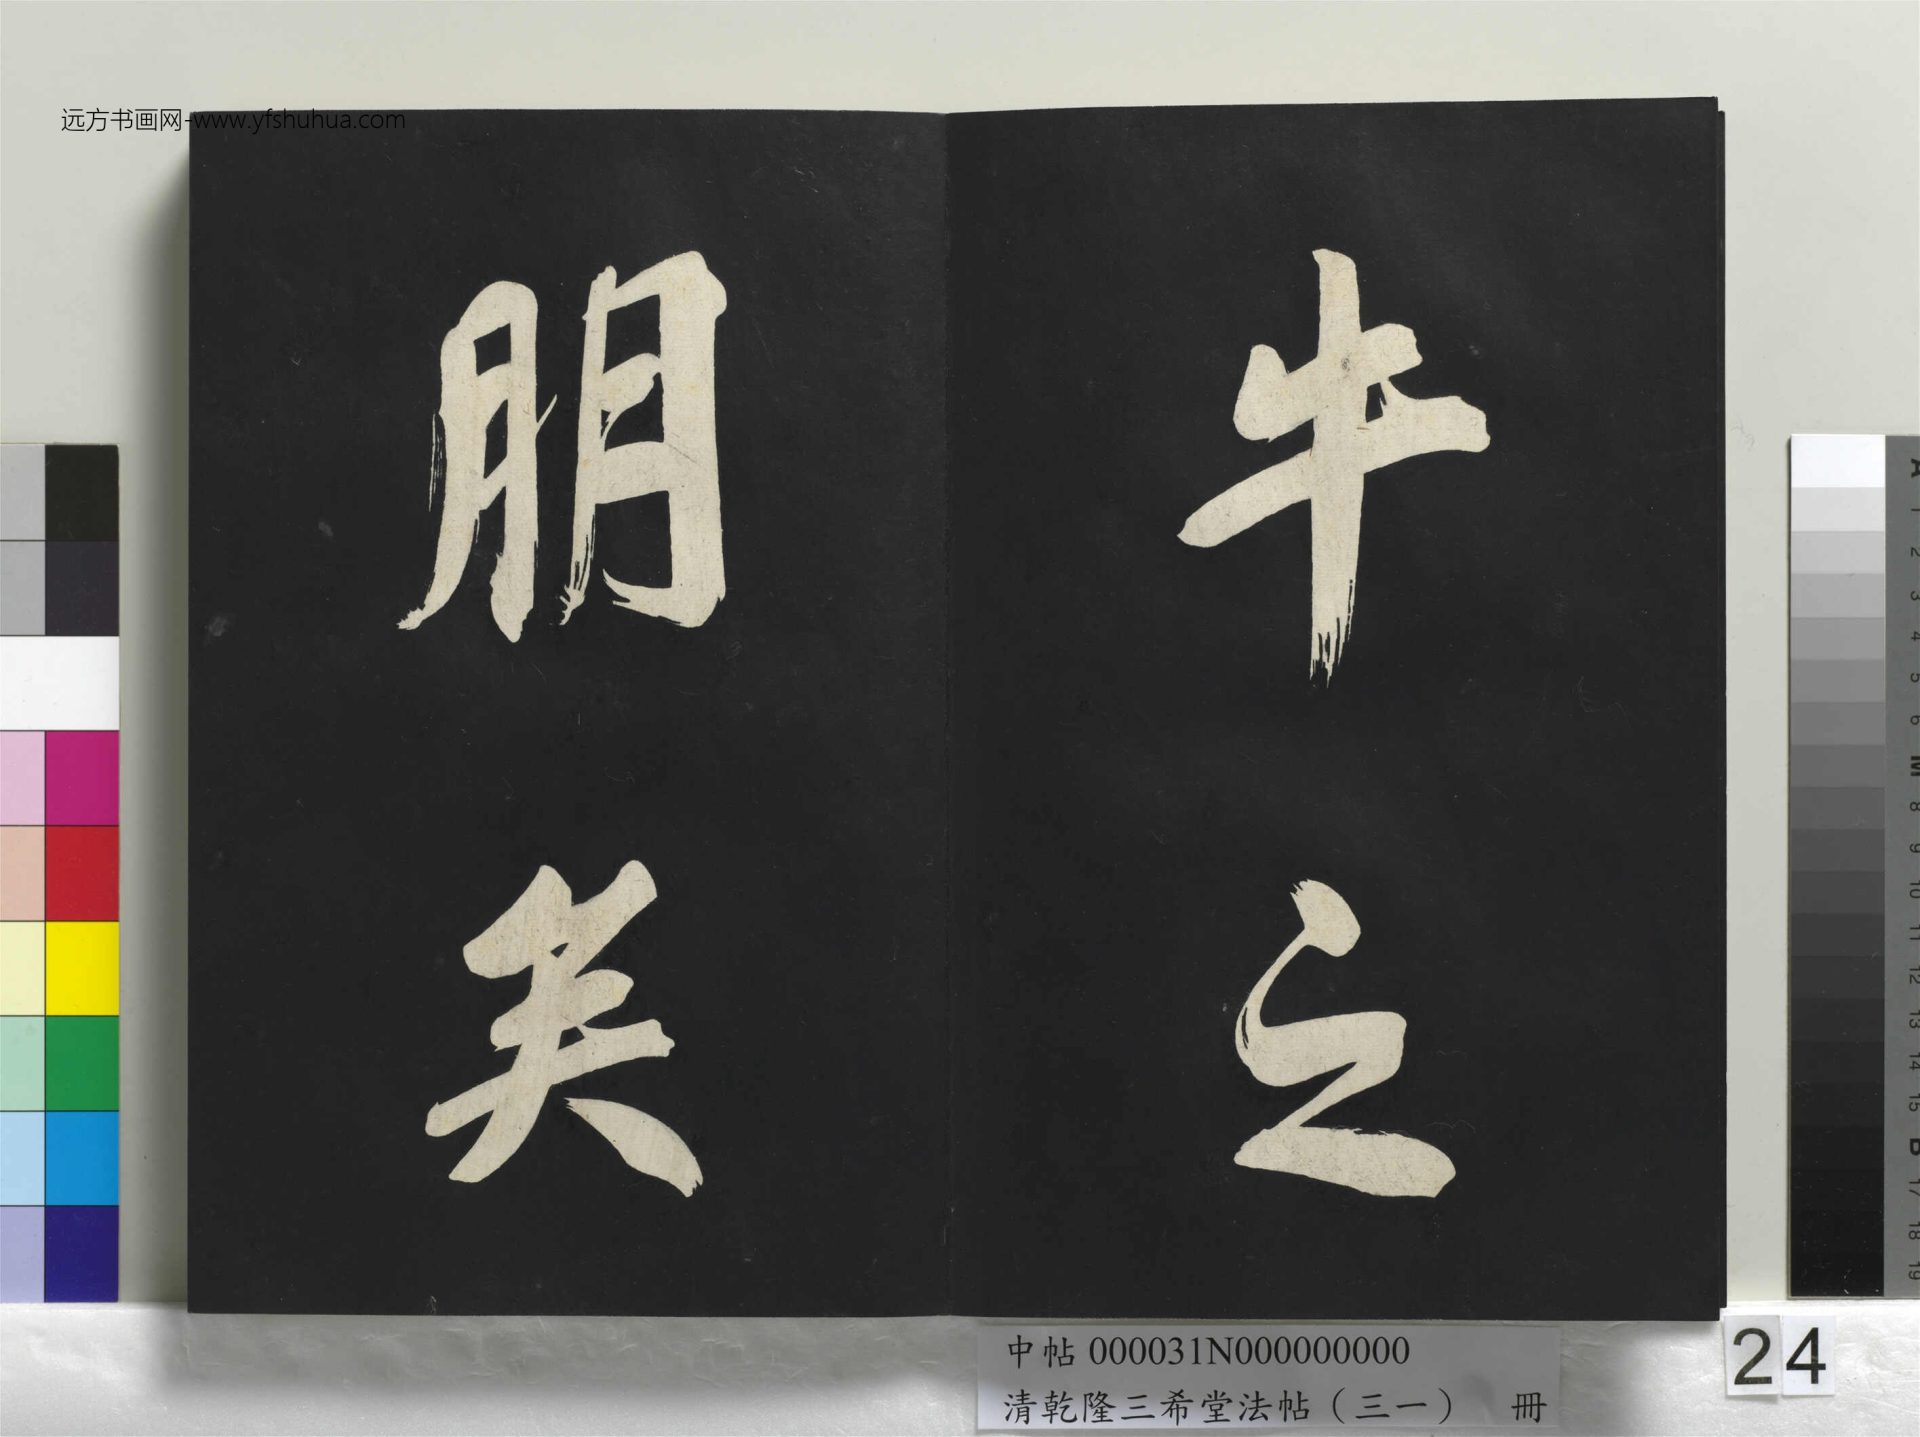 远方书画网-www.yfshuhua.com
牛之
朋矣
中帖 000031N000000000
清乾隆三希堂法帖（三一） 冊
24
A 1 2 3 4 5 6 M 8 9 10 11 12 13 14 15 B 17 18 19